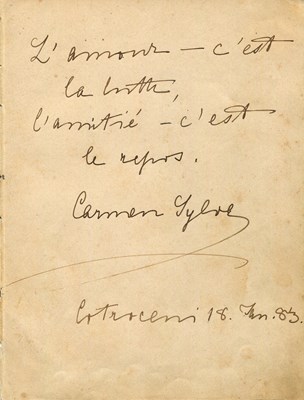 L'amour – c'est
la lutte,
l'amitié – c'est
le repos.
Carmen Sylva
Cotroceni 18. Jan. 83.